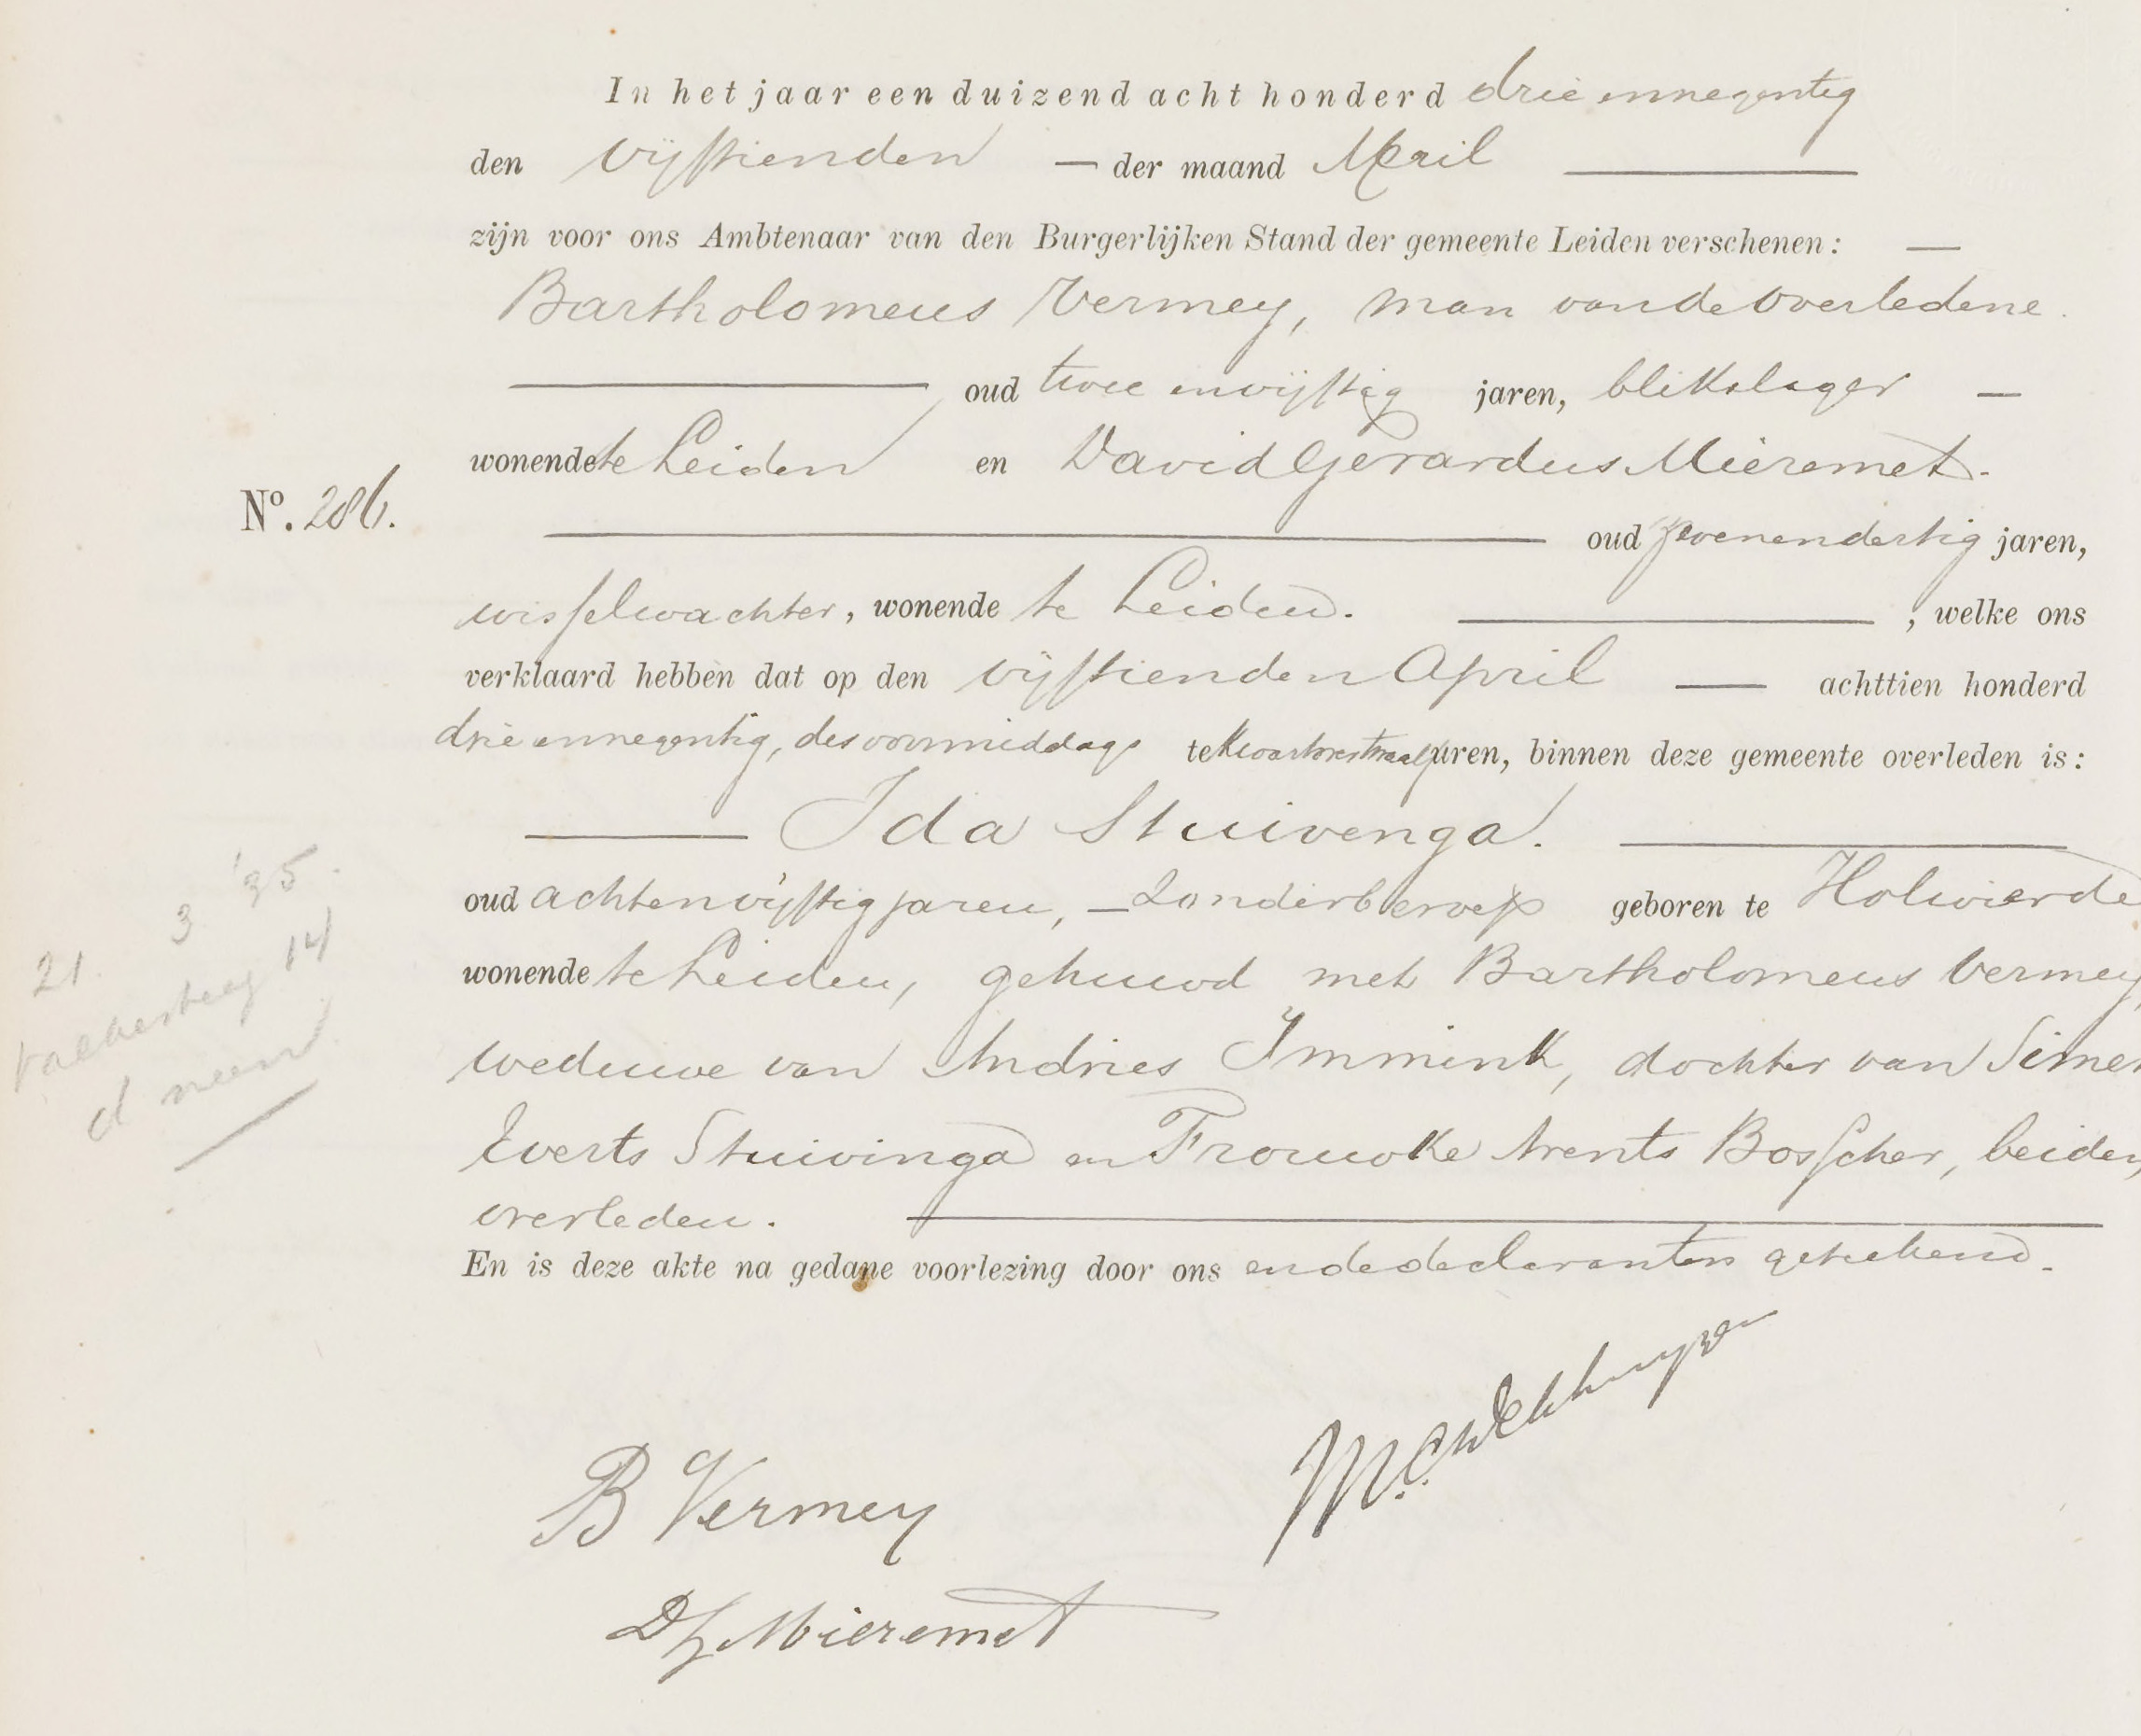 In het jaar een duizend acht honderd drie ennegentig
den vijftienden — der maand April
zijn voor ons Ambtenaar van den Burgerlijken Stand der gemeente Leiden verschenen: —
Bartholomeus Vermey, man van de overledene
oud twee envijftig jaren, blikslager —
wonende te Leiden en David Gerardus Mieremet.
No. 286.
oud zevenendertig jaren,
wisselwachter, wonende te Leiden. , welke ons
verklaard hebben dat op den vijftienden April — achttien honderd
drie ennegentig, des voormiddags te kwartoverstwaalf uren, binnen deze gemeente overleden is:
Ida Stuivenga.
oud achtenvijftig jaren, — zonder beroep geboren te Holwierde
wonende te Leiden, gehuwd met Bartholomeus Vermey,
weduwe van Andries Immink, dochter van Simen
Everts Stuivinga en Frouwke Arents Bosscher, beiden
overleden.
En is deze akte na gedane voorlezing door ons en de declaranten geteekend.
21 3 '35.
14
B Vermey
DG Mieremet